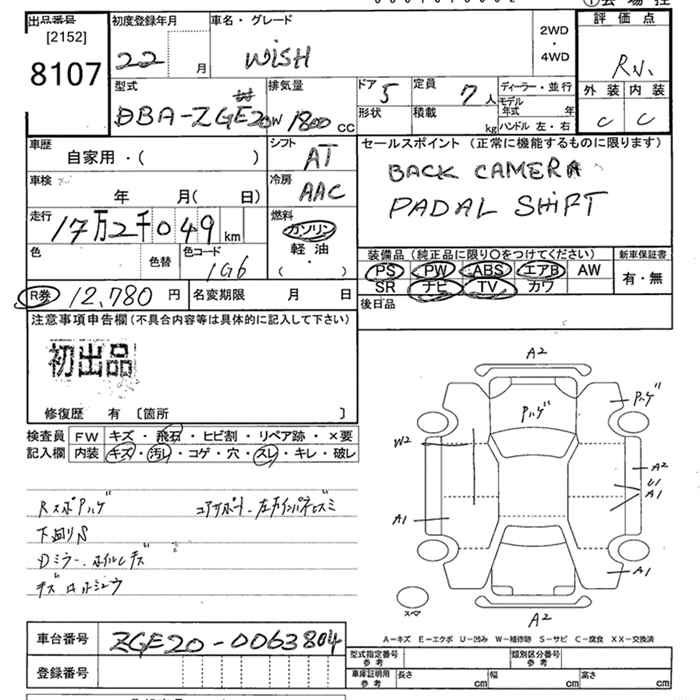 出品番号
[2152]
8107
初度登録年月
22 月
車名・グレード
WISH
2WD
・
4WD
評価点
R小
外装 内装
C C
型式
DBA-ZGE20W
排気量
1800 CC
ドア 5
形状
定員 7 人
積載 kg
ディーラー・並行
モデル年式 年
ハンドル 左・右
車歴
自家用・( )
シフト
AT
セールスポイント (正常に機能するものに限ります)
BACK CAMERA
PADAL SHIFT
車検
年 月( 日)
冷房
AAC
走行
17万2千049 km
燃料
ガソリン
軽 油
( ・ )
色
色替
色コード
1G6
装備品 (純正品に限り〇をつけてください)
PS PW ABS エアB AW
SR ナビ TV カワ
新車保証書
有・無
R券 12,780 円
名変期限 月 日
後日品
注意事項申告欄 (不具合内容等は具体的に記入して下さい)
初出品
修復歴 有 〔箇所 〕
検査員
記入欄
FW キズ・飛石・ヒビ割・リペア跡・×要
内装 キズ・汚レ・コゲ・穴・スレ・キレ・破レ
A2
Pハゲ
Pハゲ
W2
A2
U1
A1
A1
A1
A2
スペア
RスポPハゲ
コアサポート
下廻りS
Dミラー
A-キズ E-エクボ U-凹み W-補修跡 S-サビ C-腐食 XX-交換済
車台番号
ZGE20-0063804
登録番号
型式指定番号
参考
類別区分番号
参考
車庫証明用
参考
長さ cm
幅 cm
高さ cm